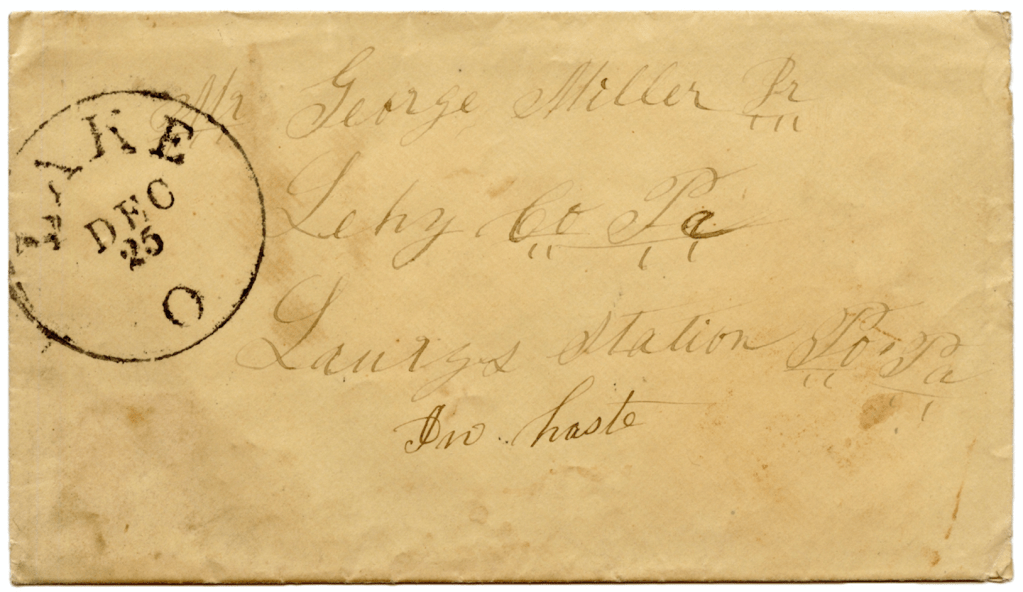 LAKE
DEC
25
O
Mr George Miller Sr
Lehy Co Pa
Laurys Station Po Pa
In haste